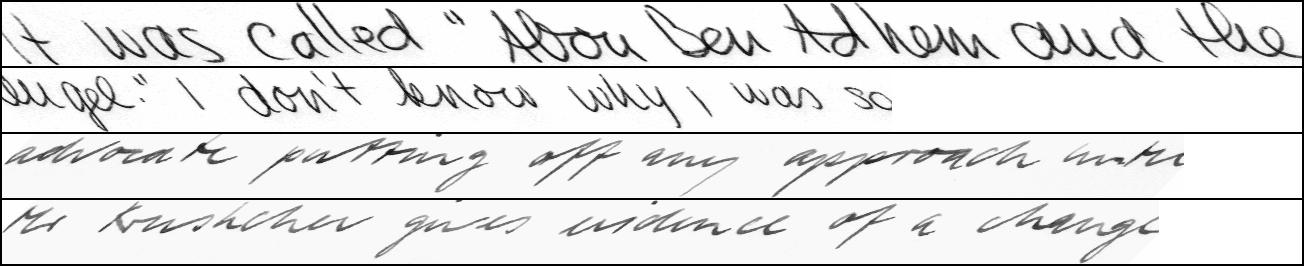 It was called " Abou Ben Adhem and the
angel." I don't know why I was so
advocate putting off any approach until
Mr Krushchev gives evidence of a change